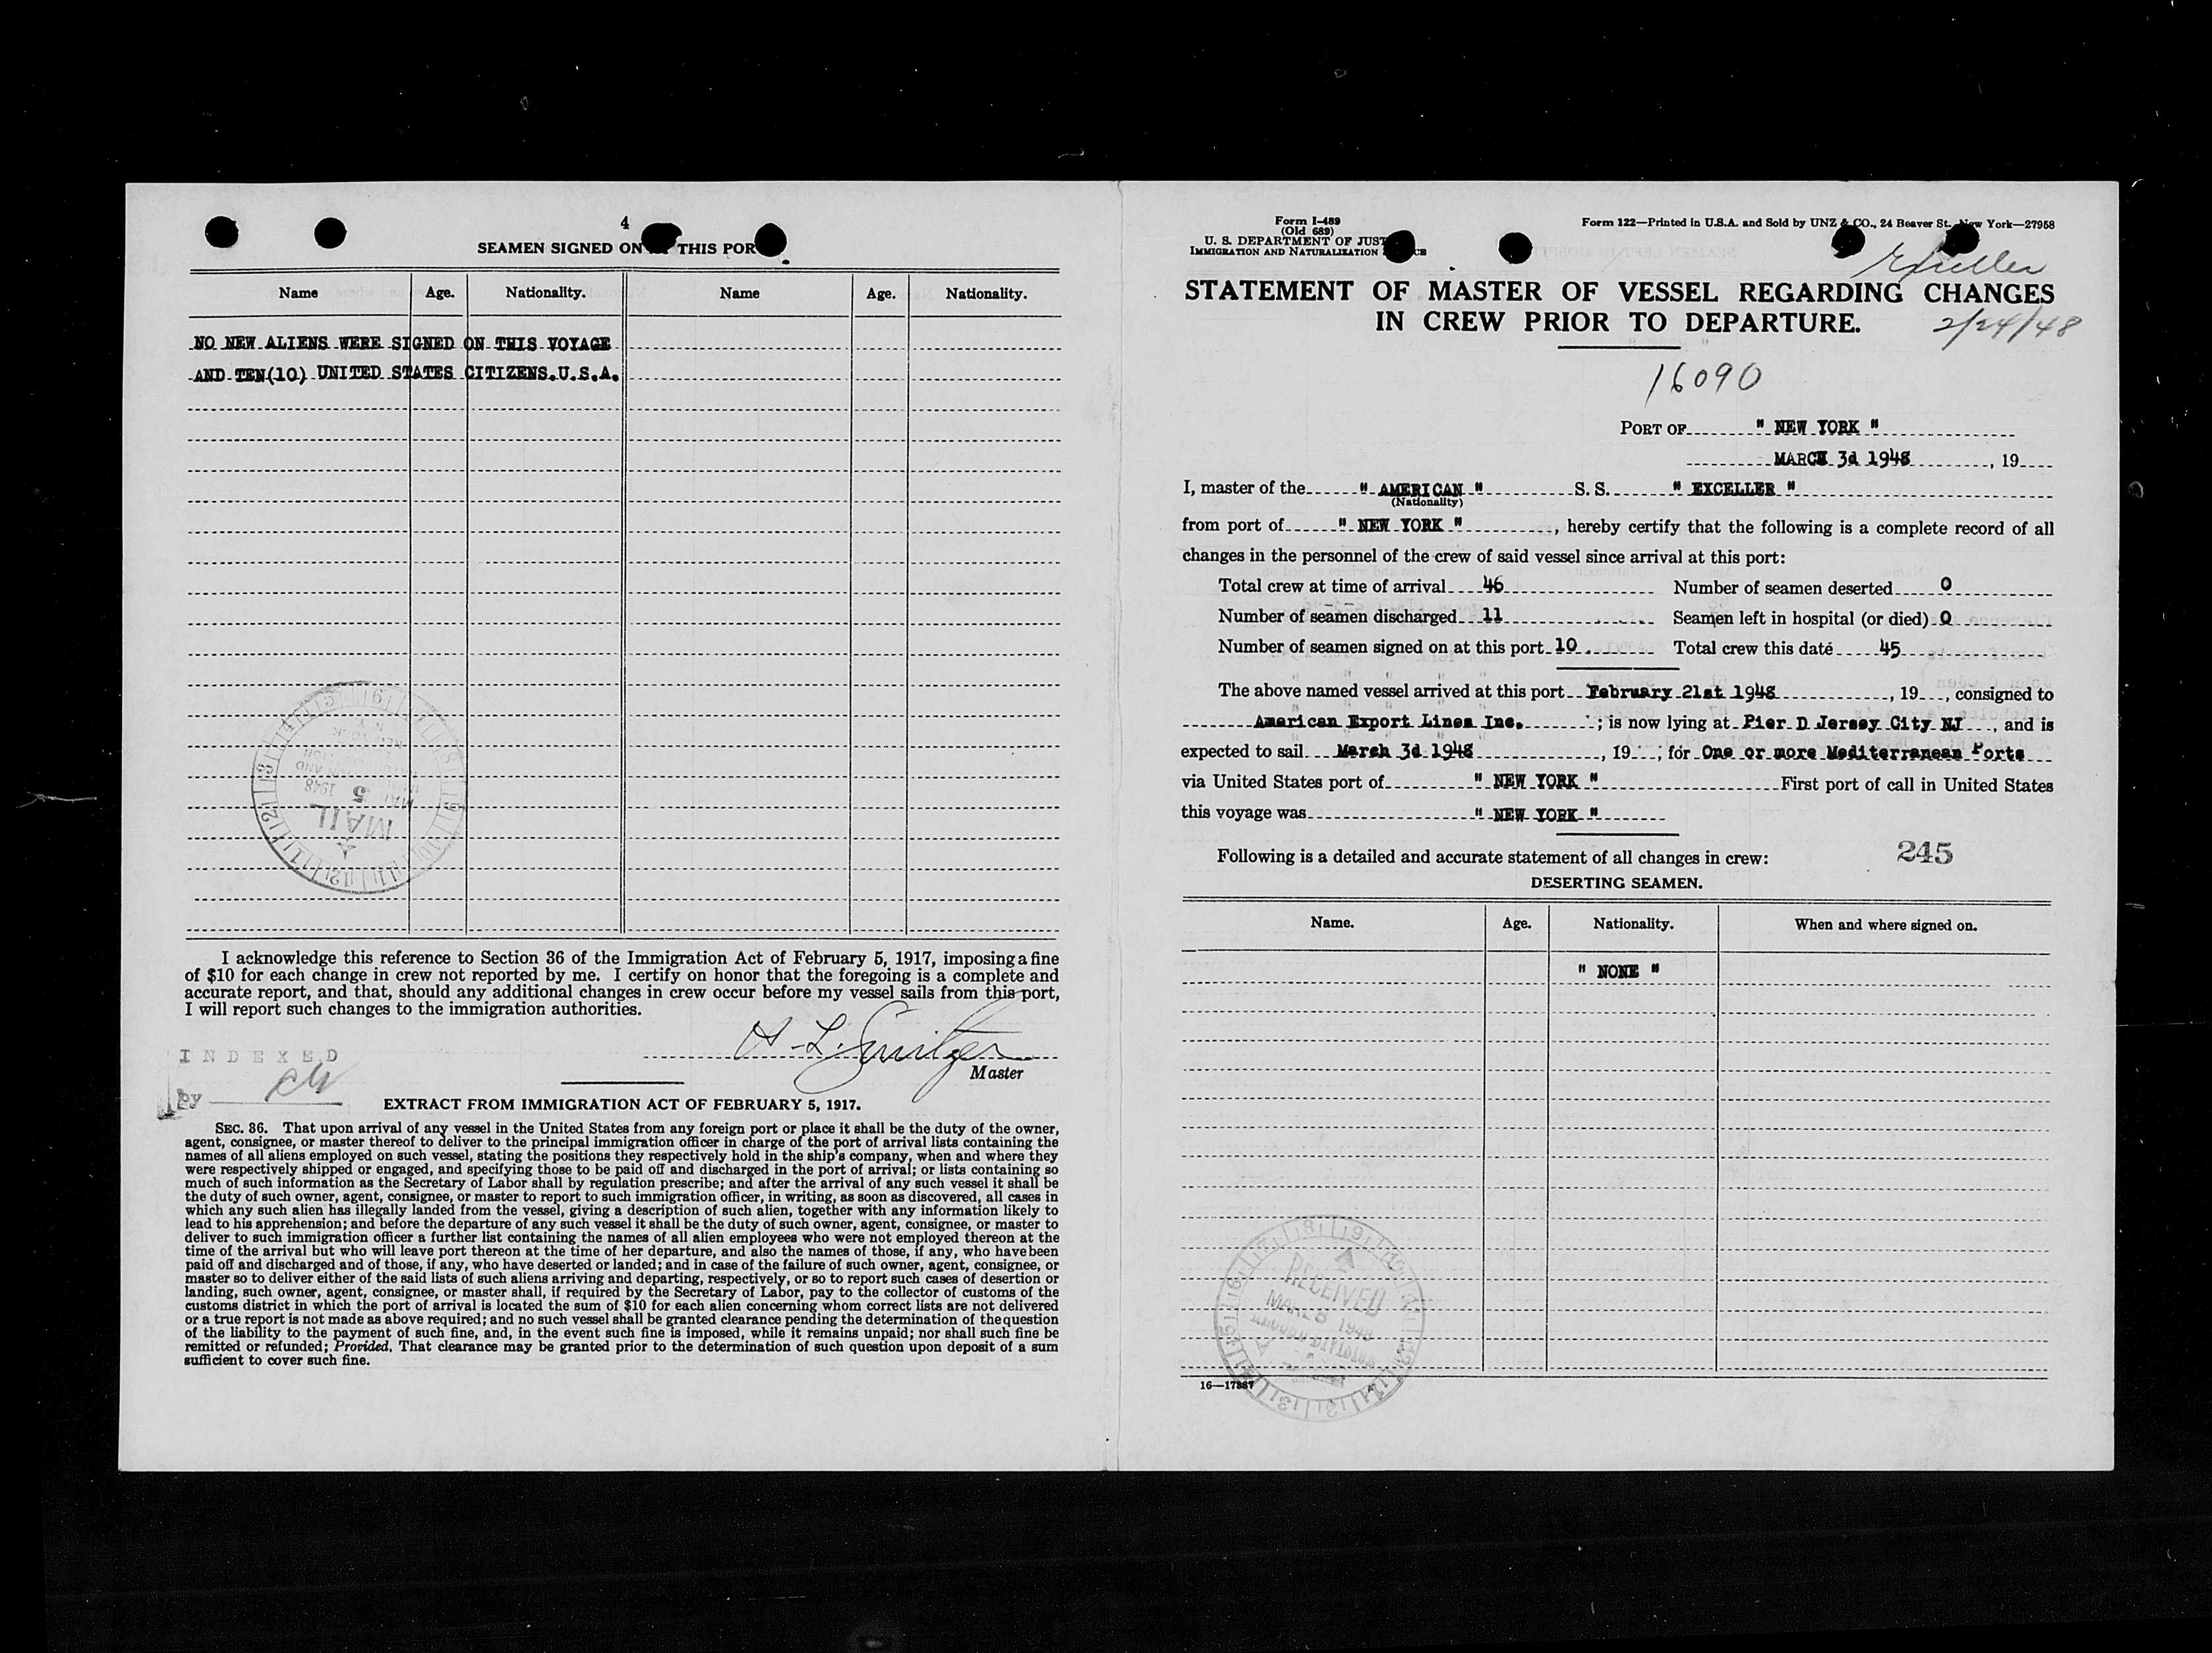 4
SEAMEN SIGNED ON THIS POR
Name Age. Nationality. Name Age. Nationality.
NO NEW ALIENS WERE SIGNED ON THIS VOYAGE
AND TEN(10) UNITED STATES CITIZENS.U.S.A.
MAIL
5
1948
I acknowledge this reference to Section 36 of the Immigration Act of February 5, 1917, imposing a fine
of $10 for each change in crew not reported by me. I certify on honor that the foregoing is a complete and
accurate report, and that, should any additional changes in crew occur before my vessel sails from this port,
I will report such changes to the immigration authorities.
INDEXED
by
Master
EXTRACT FROM IMMIGRATION ACT OF FEBRUARY 5, 1917.
SEC. 36. That upon arrival of any vessel in the United States from any foreign port or place it shall be the duty of the owner,
agent, consignee, or master thereof to deliver to the principal immigration officer in charge of the port of arrival lists containing the
names of all aliens employed on such vessel, stating the positions they respectively hold in the ship's company, when and where they
were respectively shipped or engaged, and specifying those to be paid off and discharged in the port of arrival; or lists containing so
much of such information as the Secretary of Labor shall by regulation prescribe; and after the arrival of any such vessel it shall be
the duty of such owner, agent, consignee, or master to report to such immigration officer, in writing, as soon as discovered, all cases in
which any such alien has illegally landed from the vessel, giving a description of such alien, together with any information likely to
lead to his apprehension; and before the departure of any such vessel it shall be the duty of such owner, agent, consignee, or master to
deliver to such immigration officer a further list containing the names of all alien employees who were not employed thereon at the
time of the arrival but who will leave port thereon at the time of her departure, and also the names of those, if any, who have been
paid off and discharged and of those, if any, who have deserted or landed; and in case of the failure of such owner, agent, consignee, or
master so to deliver either of the said lists of such aliens arriving and departing, respectively, or so to report such cases of desertion or
landing, such owner, agent, consignee, or master shall, if required by the Secretary of Labor, pay to the collector of customs of the
customs district in which the port of arrival is located the sum of $10 for each alien concerning whom correct lists are not delivered
or a true report is not made as above required; and no such vessel shall be granted clearance pending the determination of the question
of the liability to the payment of such fine, and, in the event such fine is imposed, while it remains unpaid; nor shall such fine be
remitted or refunded; Provided, That clearance may be granted prior to the determination of such question upon deposit of a sum
sufficient to cover such fine.
Form I-489
(Old 689)
U. S. DEPARTMENT OF JUST
IMMIGRATION AND NATURALIZATION
Form 122—Printed in U.S.A. and Sold by UNZ & CO., 24 Beaver St., New York—27958
Exceller
STATEMENT OF MASTER OF VESSEL REGARDING CHANGES
IN CREW PRIOR TO DEPARTURE.
2/24/48
16090
PORT OF " NEW YORK "
MARCH 3d 1948, 19
I, master of the " AMERICAN " S. S. " EXCELLER "
(Nationality)
from port of " NEW YORK ", hereby certify that the following is a complete record of all
changes in the personnel of the crew of said vessel since arrival at this port:
Total crew at time of arrival 46 Number of seamen deserted 0
Number of seamen discharged 11 Seamen left in hospital (or died) 0
Number of seamen signed on at this port 10 Total crew this date 45
The above named vessel arrived at this port February 21st 1948, 19 , consigned to
American Export Lines Inc. ; is now lying at Pier D Jersey City NJ , and is
expected to sail March 3d 1948, 19 ; for One or more Mediterranean Ports
via United States port of " NEW YORK " First port of call in United States
this voyage was " NEW YORK "
Following is a detailed and accurate statement of all changes in crew:
245
DESERTING SEAMEN.
Name. Age. Nationality. When and where signed on.
" NONE "
RECEIVED
MAR 5 1948
RECORD DIVISION
16—17887